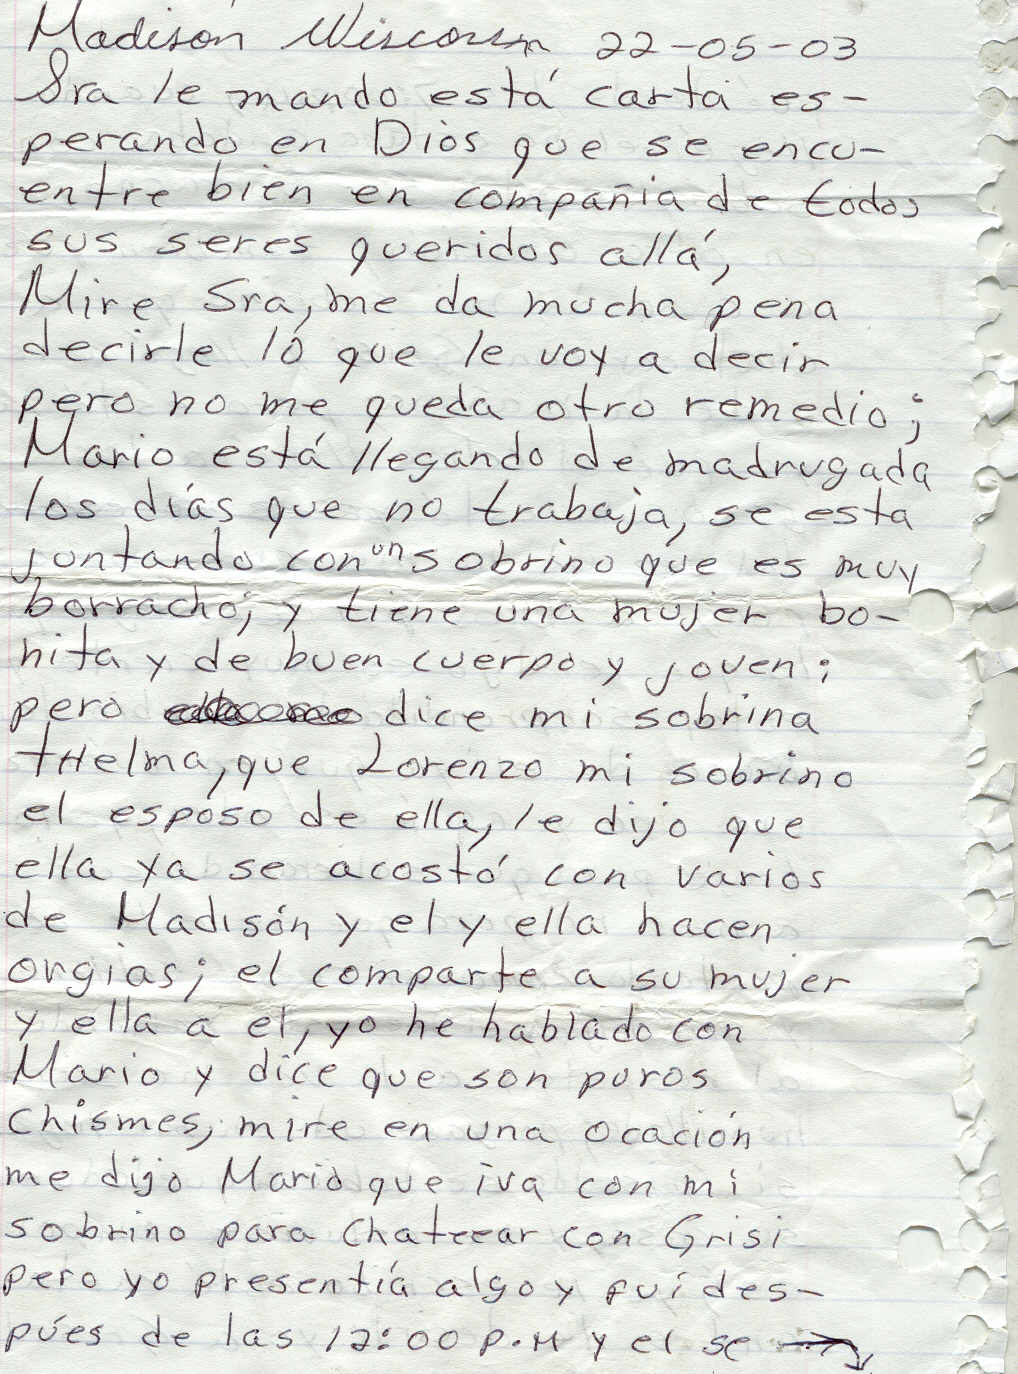 Madisón Wisconsin 22-05-03
Sra le mando está carta es-
perando en Dios que se encu-
entre bien en compañia de todos
sus seres queridos allá,
Mire Sra, me da mucha pena
decirle lo que le voy a decir
pero no me queda otro remedio;
Mario está llegando de madrugada
los días que no trabaja, se esta
juntando con un sobrino que es muy
borracho, y tiene una mujer bo-
nita y de buen cuerpo y joven;
pero dice mi sobrina
tHelma, que Lorenzo mi sobrino
el esposo de ella, le dijo que
ella ya se acostó con varios
de Madisón y el y ella hacen
orgias; el comparte a su mujer
y ella a el, yo he hablado con
Mario y dice que son puros
chismes, mire en una ocación
me dijo Mario que iva con mi
sobrino para chateear con Grisi
pero yo presentía algo y fuí des-
púes de las 12:00 P.M y el se →